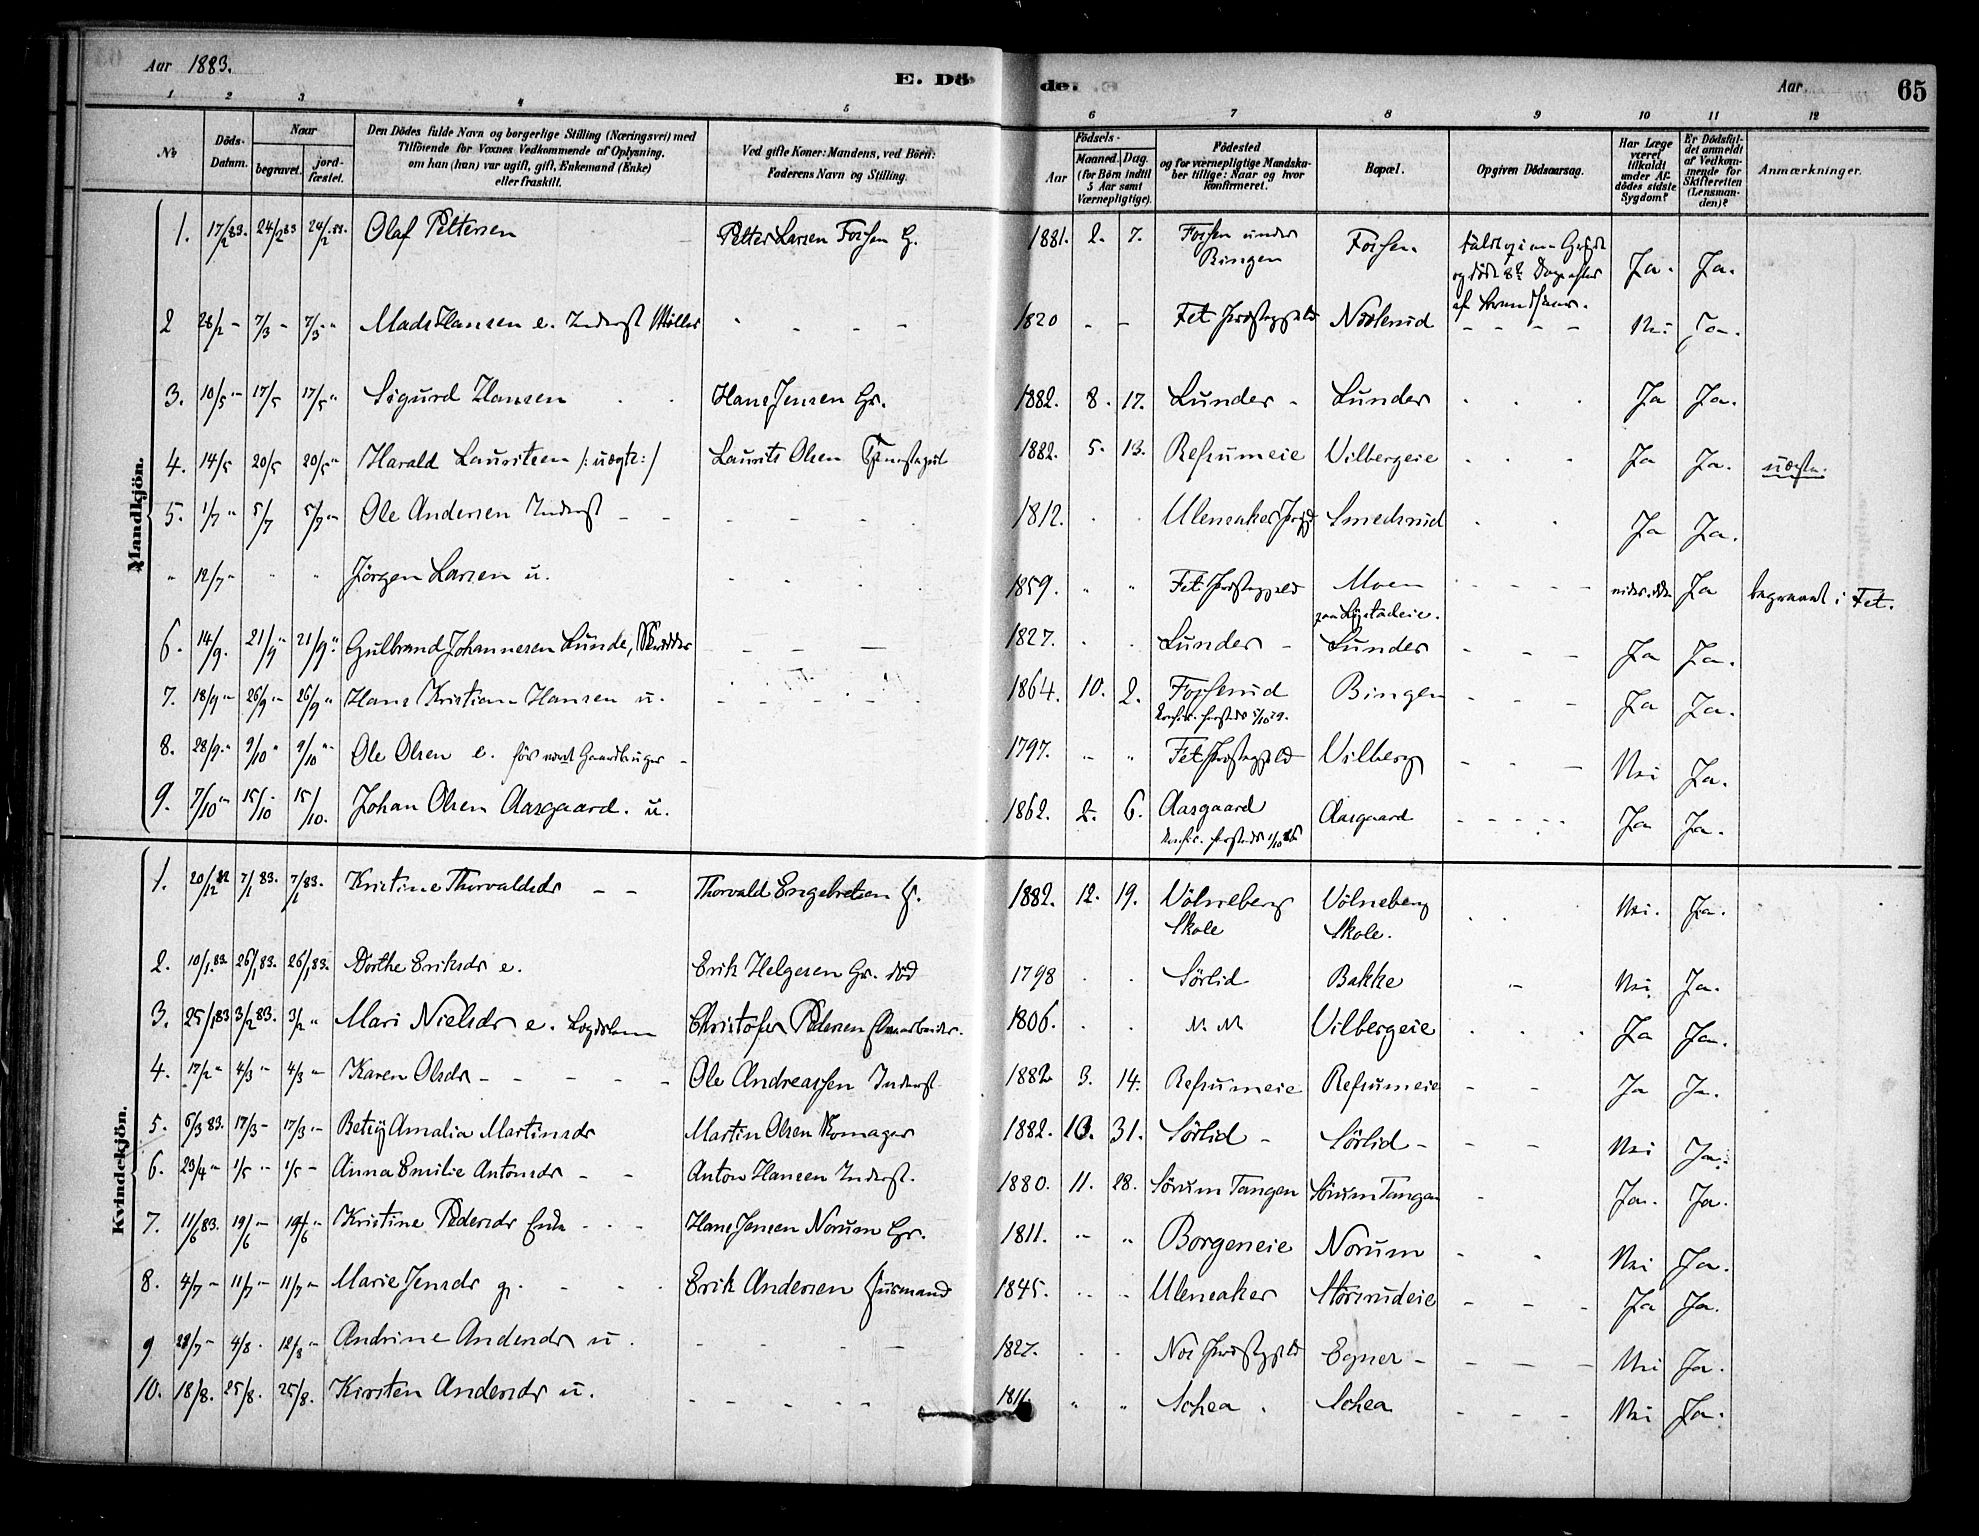 Aar 1883.
E. Döde.
Aar
65
1 2 3 4 5 6 7 8 9 10 11 12
No
Döds-Datum.
Naar
begravet.
jordfæstet.
Den Dödes fulde Navn og borgerlige Stilling (Næringsvei) med
Tilföiende for Voxnes Vedkommende af Oplysning,
om han (hun) var ugift, gift, Enkemand (Enke)
eller fraskilt.
Ved gifte Koner: Mandens, ved Börn:
Faderens Navn og Stilling.
Födsels-
Aar
Maaned. Dag.
(for Börn indtil
5 Aar samt
Værnepligtige).
Födested
og for værnepligtige Mandska-
ber tillige: Naar og hvor
konfirmeret.
Bopæl.
Opgiven Dödsaarsag.
Har Læge
været
tilkaldt
under Af-
dödes sidste
Sygdom?
Er Dödsfal-
det anmeldt
af Vedkom-
mende for
Skifteretten
(Lensman-
den)?
Anmærkninger.
Mandkjön.
1. 17/2 83. 24/2 83 24/2 83. Olaf Pettersen Petter Larsen Fossen G. 1881. 2. 7. Fossen under Bingen Fossen Ja. Ja.
2 28/2 - 7/3 - 7/3 - Mads Hansen e. Inderst 1820 - - Fet Præstegjeld Nei Ja.
3. 10/5 - 17/5 17/5 " Sigurd Hansen Hans Jensen Gr. 1882. 8. 17. Lunder - Lunder Ja Ja.
4. 14/5 20/5 20/5 " Harald Lauritsen /: uægte :/ Laurits Olsen 1882. 5. 13. Refsumeie Vilbergeie Ja Ja. uægte.
5. 1/7 " 5/7 5/7 " Ole Andersen Inderst - - 1812. Ulensaker Smedsrud Ja Ja.
" 12/7 " " " Jörgen Larsen u. 1859. " " Fet Præstegjeld Moen Ja begravet i Fet.
6. 14/9. 21/9 " 21/9 " Gulbrand Johannesen Lunde, 1827. Lunder - Lunder Ja Ja.
7. 18/9 " 26/9 - 26/9 " Hans Kristian Hansen u. 1864. 10. 2. Fossenud Bingen Ja Ja.
8. 28/9 " 9/10 " 9/10 " Ole Olsen e. för været Gaardbruger - 1797. " " Fet Præstegjeld Vilberg Nei Ja.
9. 7/10 " 15/10 15/10. Johan Olsen Aasgaard. u. 1862. 2. 6. Aasgaard Aasgaard Ja Ja.
Kvindekjön.
1. 20/12 82 7/1 83. 7/1 83. Kristine Thorvaldsdr - - Thorvald Engebretsen 1882. 12. 19. Völneberg Skole Völneberg Skole. Nei. Ja.
2. 10/1 83. 26/1 83. 26/1 83. Dorthe Eriksdr e. Erik Helgesen Gr. död 1798 Sörlid Bakke - Nei Ja.
3. 25/1 83 3/2 83. 3/2 " Mari Nielsdr e. Lægdslem Christofer Pedersen 1806. Vilbergeie Ja Ja.
4. 17/2 " 4/3 " 4/3 " Karen Olsdr - Ole Andreassen Inderst 1882 3. 14. Refsumeie Refsumeie Ja Ja.
5. 6/3 83. 17/3 - 17/3 - Betsy Amalia Martinsdr Martin Olsen Komager 1882. 10. 31. Sörlid - Sörlid - Nei Ja.
6. 23/4 " 1/5 " 1/5 - Anna Emilie Antonsdr - - Anton Hansen Inderst. 1880. 11. 28. Sörum Tangen Sörum Tangen Ja. Ja.
7. 11/6 83. 19/6 - 19/6 " Kristine Pedersdr Enke Hans Jensen Norum Gr. 1811. " " Borgeneie Norum Nei Ja.
8. 4/7 - 11/7 - 11/7 - Marie Jensdr g. Erik Andersen Husmand 1845. Ulensaker Ja Ja.
9 28/7 - 4/8 12/8 " Andrine Andersdr u 1827. Nes Præstegjeld Egner - Nei Ja.
10. 18/8. 25/8. 25/8. Kirsten Andersdr u. 1811 " " Schea. Schea Nei Ja.